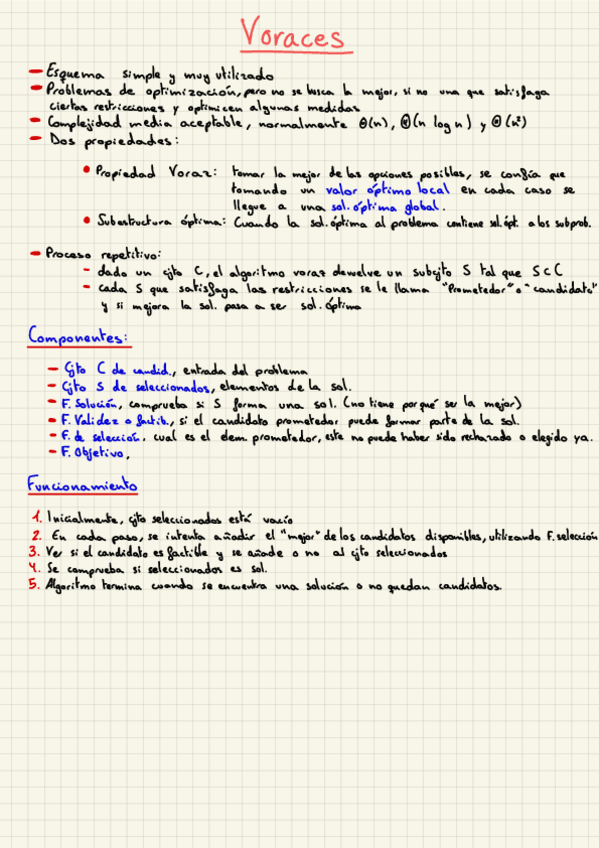 Voraces
- Esquema simple y muy utilizado
- Problemas de optimización, pero no se busca la mejor, si no una que satisfaga
ciertas restricciones y optimicen algunas medidas
- Complejidad media aceptable, normalmente Θ(n), Θ(n log n) y Θ(n²)
- Dos propiedades:
• Propiedad Voraz: tomar la mejor de las opciones posibles, se confía que
tomando un valor óptimo local en cada caso se
llegue a una sol. óptima global.
• Subestructura óptima: Cuando la sol. óptima al problema contiene sol. ópt. a los subprob.
- Proceso repetitivo:
- dado un cjto C, el algoritmo voraz devuelve un subcjto S tal que S ⊂ C
- cada S que satisfaga las restricciones se le llama "Prometedor" o "candidato"
y si mejora la sol. pasa a ser sol. óptima
Componentes:
- Cjto C de candid., entrada del problema
- Cjto S de seleccionados, elementos de la sol.
- F. Solución, comprueba si S forma una sol. (no tiene porqué ser la mejor)
- F. Validez o factib., si el candidato prometedor puede formar parte de la sol.
- F. de selección, cual es el elem. prometedor, este no puede haber sido rechazado o elegido ya.
- F. Objetivo,
Funcionamiento
1. Inicialmente, cjto seleccionados está vacío
2. En cada paso, se intenta añadir el "mejor" de los candidatos disponibles, utilizando F. selección
3. Ver si el candidato es factible y se añade o no al cjto seleccionados
4. Se comprueba si seleccionados es sol.
5. Algoritmo termina cuando se encuentra una solución o no quedan candidatos.